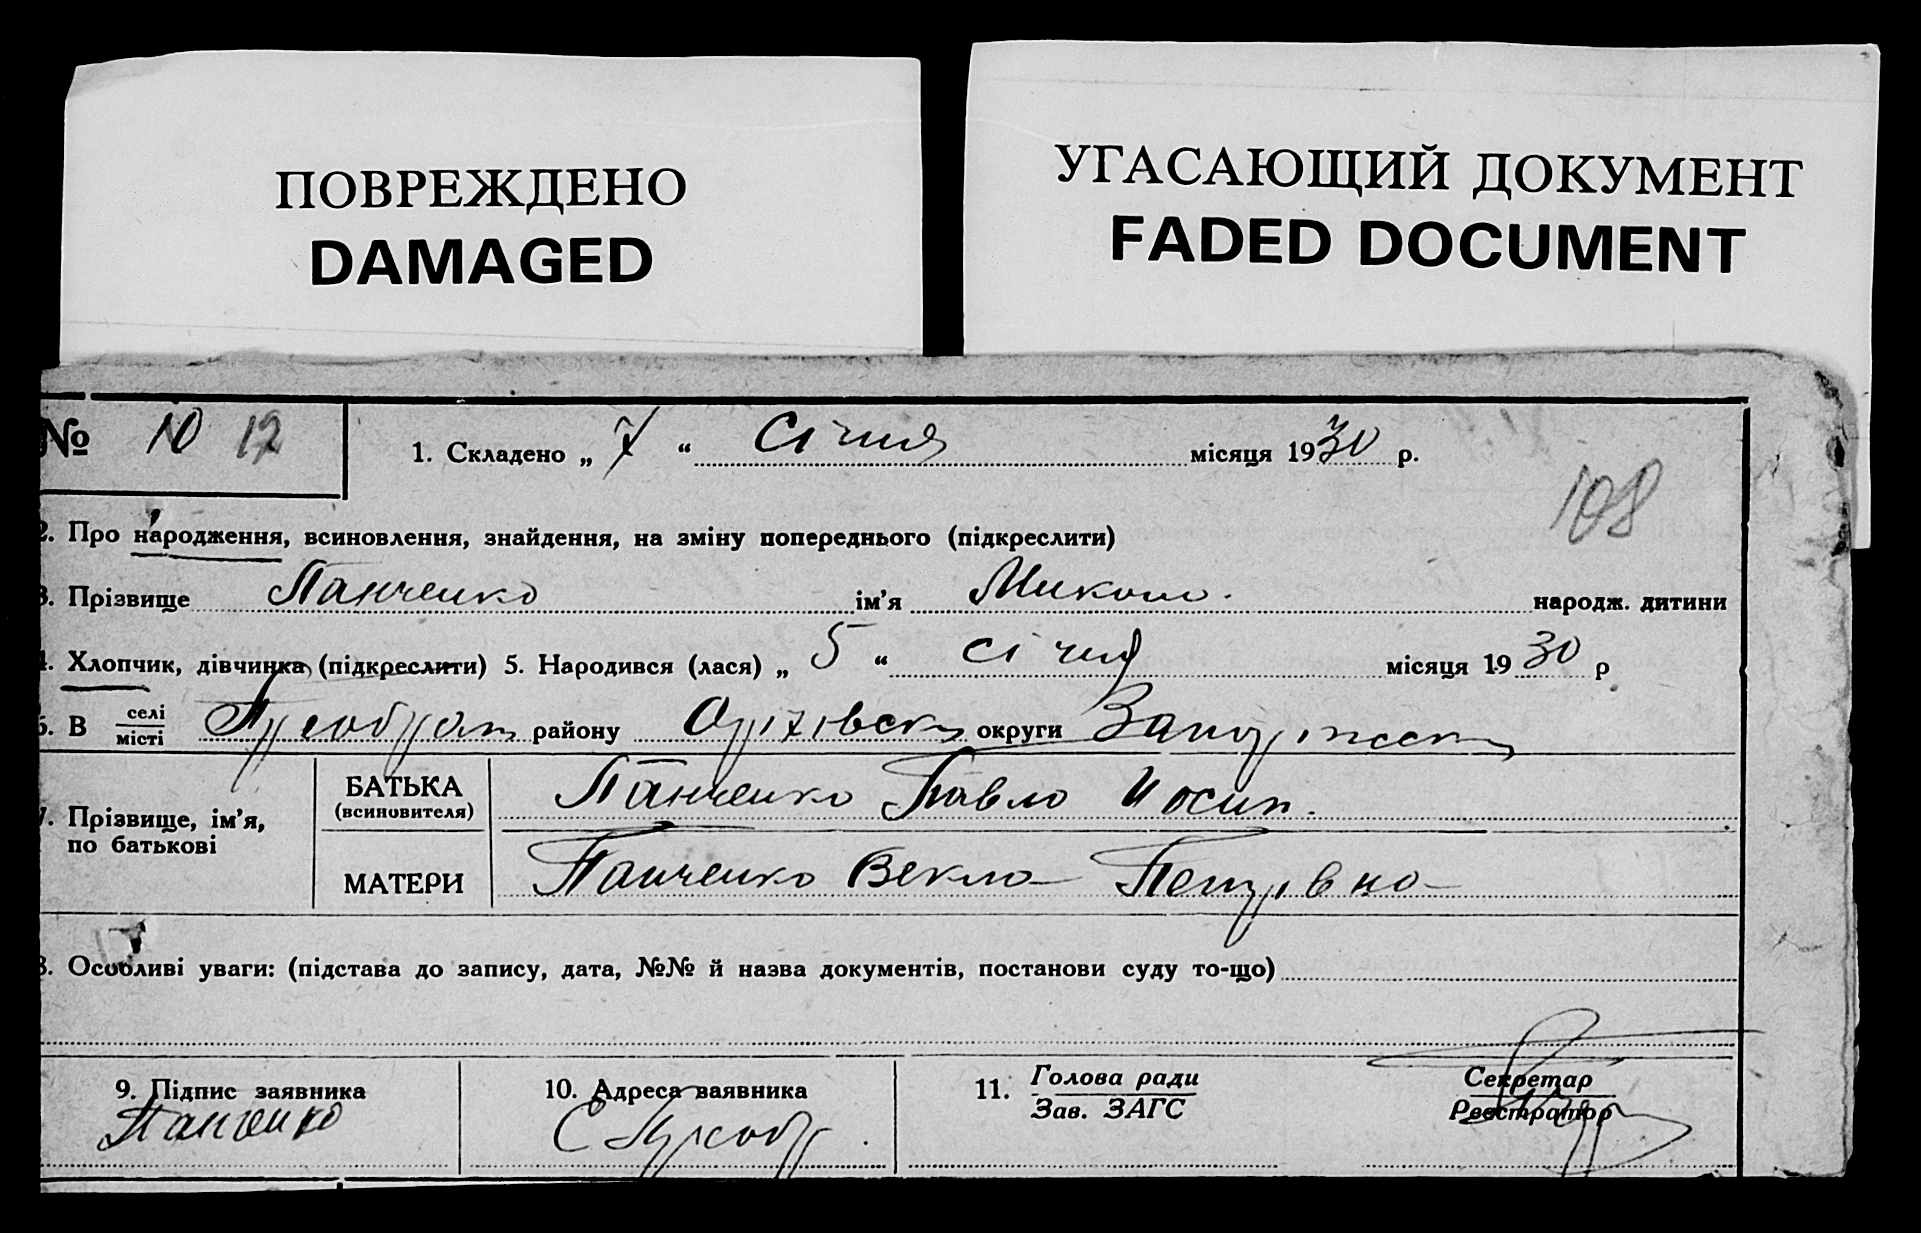 ПОВРЕЖДЕНО
DAMAGED
УГАСАЮЩИЙ ДОКУМЕНТ
FADED DOCUMENT
№ 10 12
1. Складено „ 7 “ Січня місяця 1930 р.
108
2. Про народження, всиновлення, знайдення, на зміну попереднього (підкреслити)
3. Прізвище Панченко ім'я Микола народж. дитини
4. Хлопчик, дівчинка (підкреслити) 5. Народився (лася) „ 5 “ січня місяця 1930 р
6. В селі місті Преображ району Оріхівськ округи Запоріжськ
7. Прізвище, ім'я, по батькові
БАТЬКА (всиновителя) Панченко Павло Йосип.
МАТЕРИ Панченко Векла Петрівна
8. Особливі уваги: (підстава до запису, дата, №№ й назва документів, постанови суду то-що)
9. Підпис заявника
Панченко
10. Адреса заявника
С Преобр.
11. Голова ради
Зав. ЗАГС
Секретар
Реєстратор